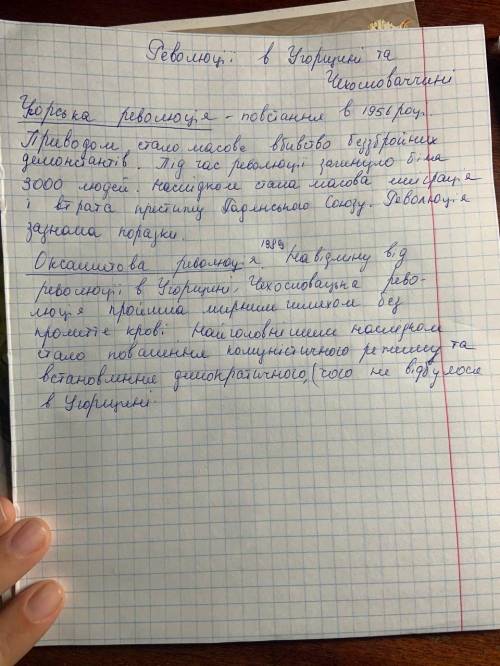 Революції в Угорщині та
Чехословаччині
Угорська революція - повстання в 1956 році.
Приводом стало масове вбивство беззбройних
демонстантів. Під час революції загинуло біля
3000 людей. Наслідком стала масова еміграція
і втрата престижу Радянського Союзу. Революція
зазнала поразки.
Оксамитова революція 1989 На відміну від
революції в Угорщині, Чехословацька рево-
люція пройшла мирним шляхом без
пролиття крові. Найголовнішим наслідком
стало повалення комуністичного режиму та
встановлення демократичного, (чого не відбулося
в Угорщині.